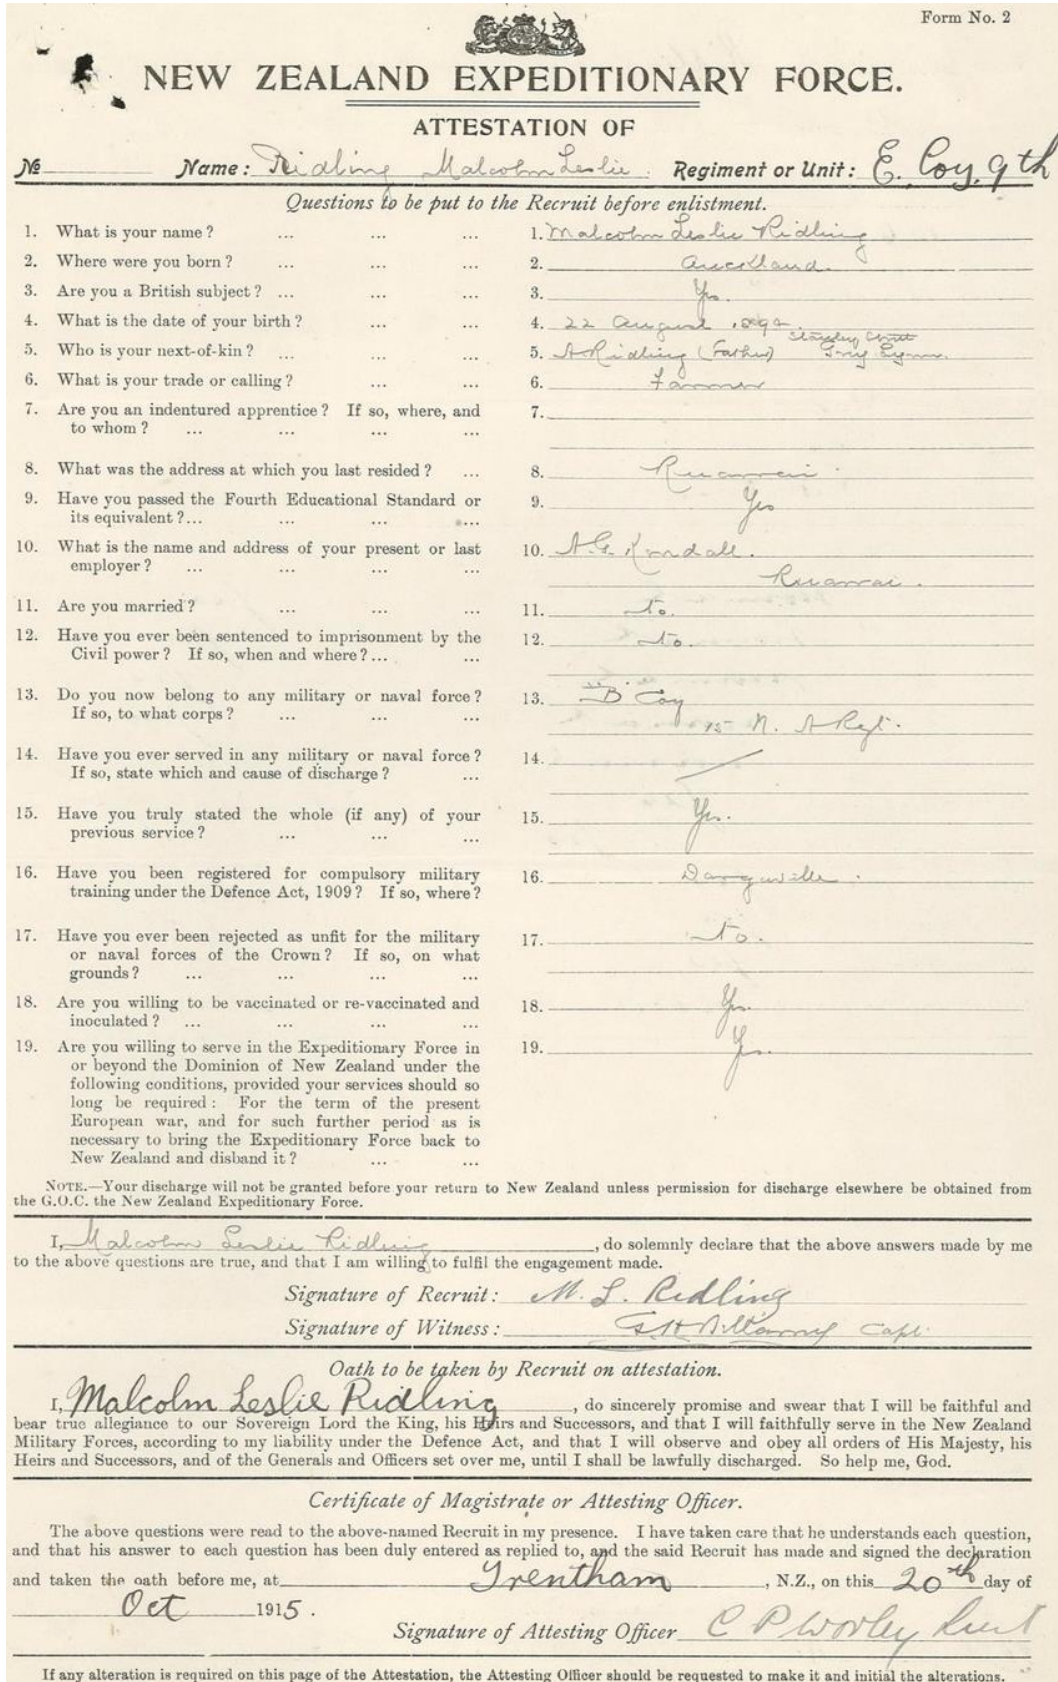 Form No. 2
NEW ZEALAND EXPEDITIONARY FORCE.
ATTESTATION OF
No Name: Ridling Malcolm Leslie Regiment or Unit: E. Coy. 9th
Questions to be put to the Recruit before enlistment.
1. What is your name? ... ... ... 1. Malcolm Leslie Ridling
2. Where were you born? ... ... ... 2. Auckland.
3. Are you a British subject? ... ... ... 3. Yes.
4. What is the date of your birth? ... ... 4. 22 August 189
5. Who is your next-of-kin? ... ... ... 5. A Ridling (Father) Grey Lynn.
6. What is your trade or calling? ... ... 6. Farmer
7. Are you an indentured apprentice? If so, where, and 7.
to whom? ... ... ... ...
8. What was the address at which you last resided? ... 8. Ruawai.
9. Have you passed the Fourth Educational Standard or 9. Yes
its equivalent?... ... ... ...
10. What is the name and address of your present or last 10. A.G. Kendall.
employer? ... ... ... ... Ruawai.
11. Are you married? ... ... ... 11. No.
12. Have you ever been sentenced to imprisonment by the 12. No.
Civil power? If so, when and where?... ...
13. Do you now belong to any military or naval force? 13. "B" Coy
If so, to what corps? ... ... ... 15 N. A Regt.
14. Have you ever served in any military or naval force? 14.
If so, state which and cause of discharge? ...
15. Have you truly stated the whole (if any) of your 15. Yes.
previous service? ... ... ...
16. Have you been registered for compulsory military 16. Dargaville.
training under the Defence Act, 1909? If so, where?
17. Have you ever been rejected as unfit for the military 17. No.
or naval forces of the Crown? If so, on what
grounds? ... ... ... ...
18. Are you willing to be vaccinated or re-vaccinated and 18. Yes.
inoculated? ... ... ... ...
19. Are you willing to serve in the Expeditionary Force in 19. Yes.
or beyond the Dominion of New Zealand under the
following conditions, provided your services should so
long be required: For the term of the present
European war, and for such further period as is
necessary to bring the Expeditionary Force back to
New Zealand and disband it? ... ...
NOTE.—Your discharge will not be granted before your return to New Zealand unless permission for discharge elsewhere be obtained from
the G.O.C. the New Zealand Expeditionary Force.
I, Malcolm Leslie Ridling, do solemnly declare that the above answers made by me
to the above questions are true, and that I am willing to fulfil the engagement made.
Signature of Recruit: M. L. Ridling
Signature of Witness: Capt.
Oath to be taken by Recruit on attestation.
I, Malcolm Leslie Ridling, do sincerely promise and swear that I will be faithful and
bear true allegiance to our Sovereign Lord the King, his Heirs and Successors, and that I will faithfully serve in the New Zealand
Military Forces, according to my liability under the Defence Act, and that I will observe and obey all orders of His Majesty, his
Heirs and Successors, and of the Generals and Officers set over me, until I shall be lawfully discharged. So help me, God.
Certificate of Magistrate or Attesting Officer.
The above questions were read to the above-named Recruit in my presence. I have taken care that he understands each question,
and that his answer to each question has been duly entered as replied to, and the said Recruit has made and signed the declaration
and taken the oath before me, at Trentham, N.Z., on this 20th day of
Oct 1915.
Signature of Attesting Officer C P Worley Lieut
If any alteration is required on this page of the Attestation, the Attesting Officer should be requested to make it and initial the alterations.